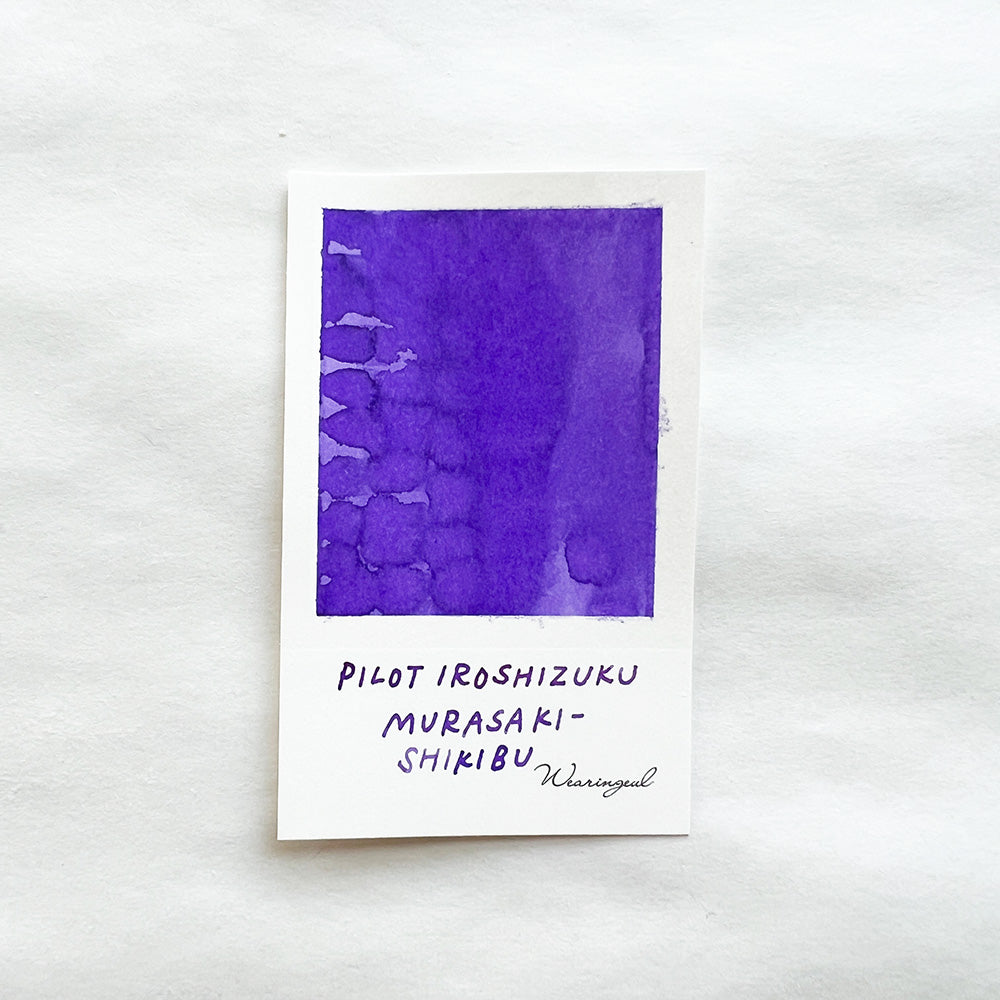 PILOT IROSHIZUKU
MURASAKI-
SHIKIBU
Wearingeul